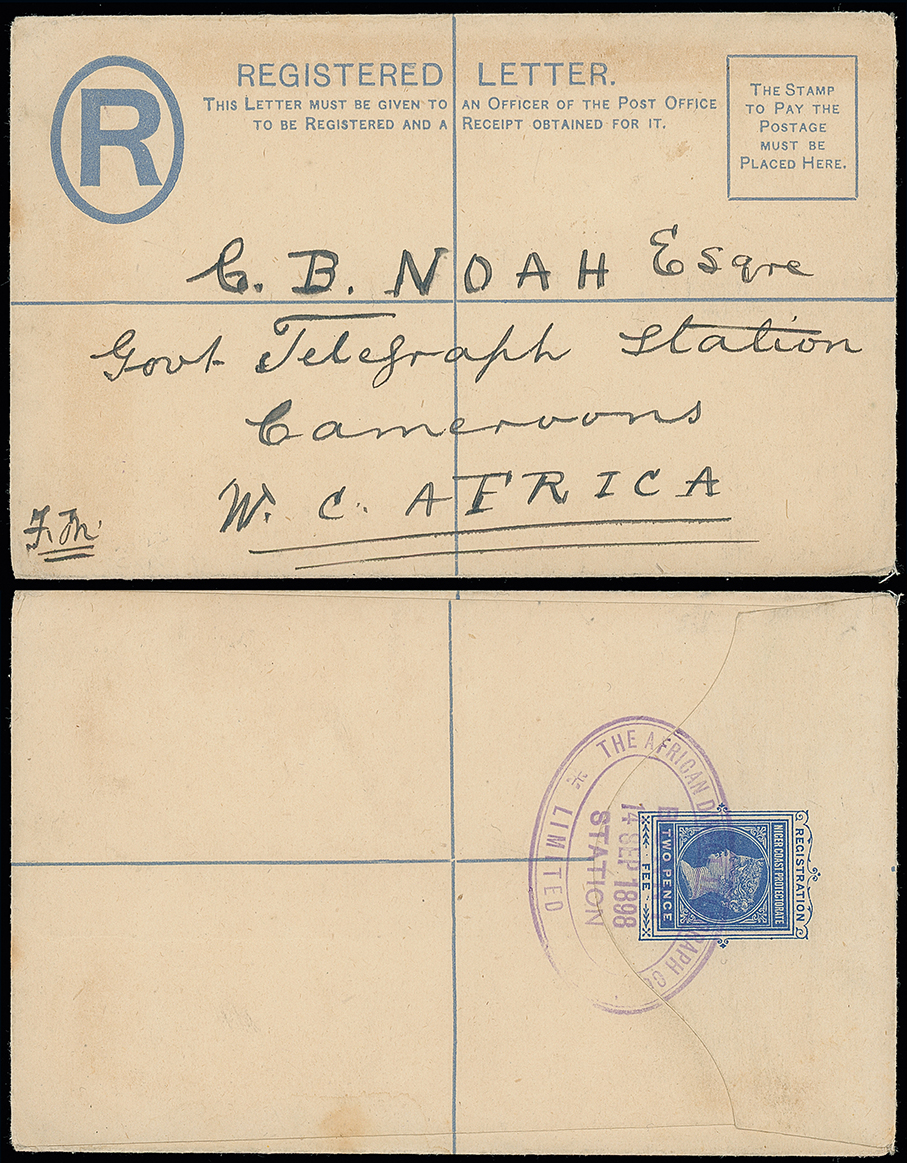 REGISTERED LETTER.
THIS LETTER MUST BE GIVEN TO AN OFFICER OF THE POST OFFICE
TO BE REGISTERED AND A RECEIPT OBTAINED FOR IT.
R
THE STAMP
TO PAY THE
POSTAGE
MUST BE
PLACED HERE.
C. B. NOAH Esqre
Govt Telegraph Station
Cameroons
W. C. AFRICA
THE AFRICAN
LIMITED
14 SEP 1898
STATION
REGISTRATION
NIGER COAST PROTECTORATE
TWO PENCE
FEE